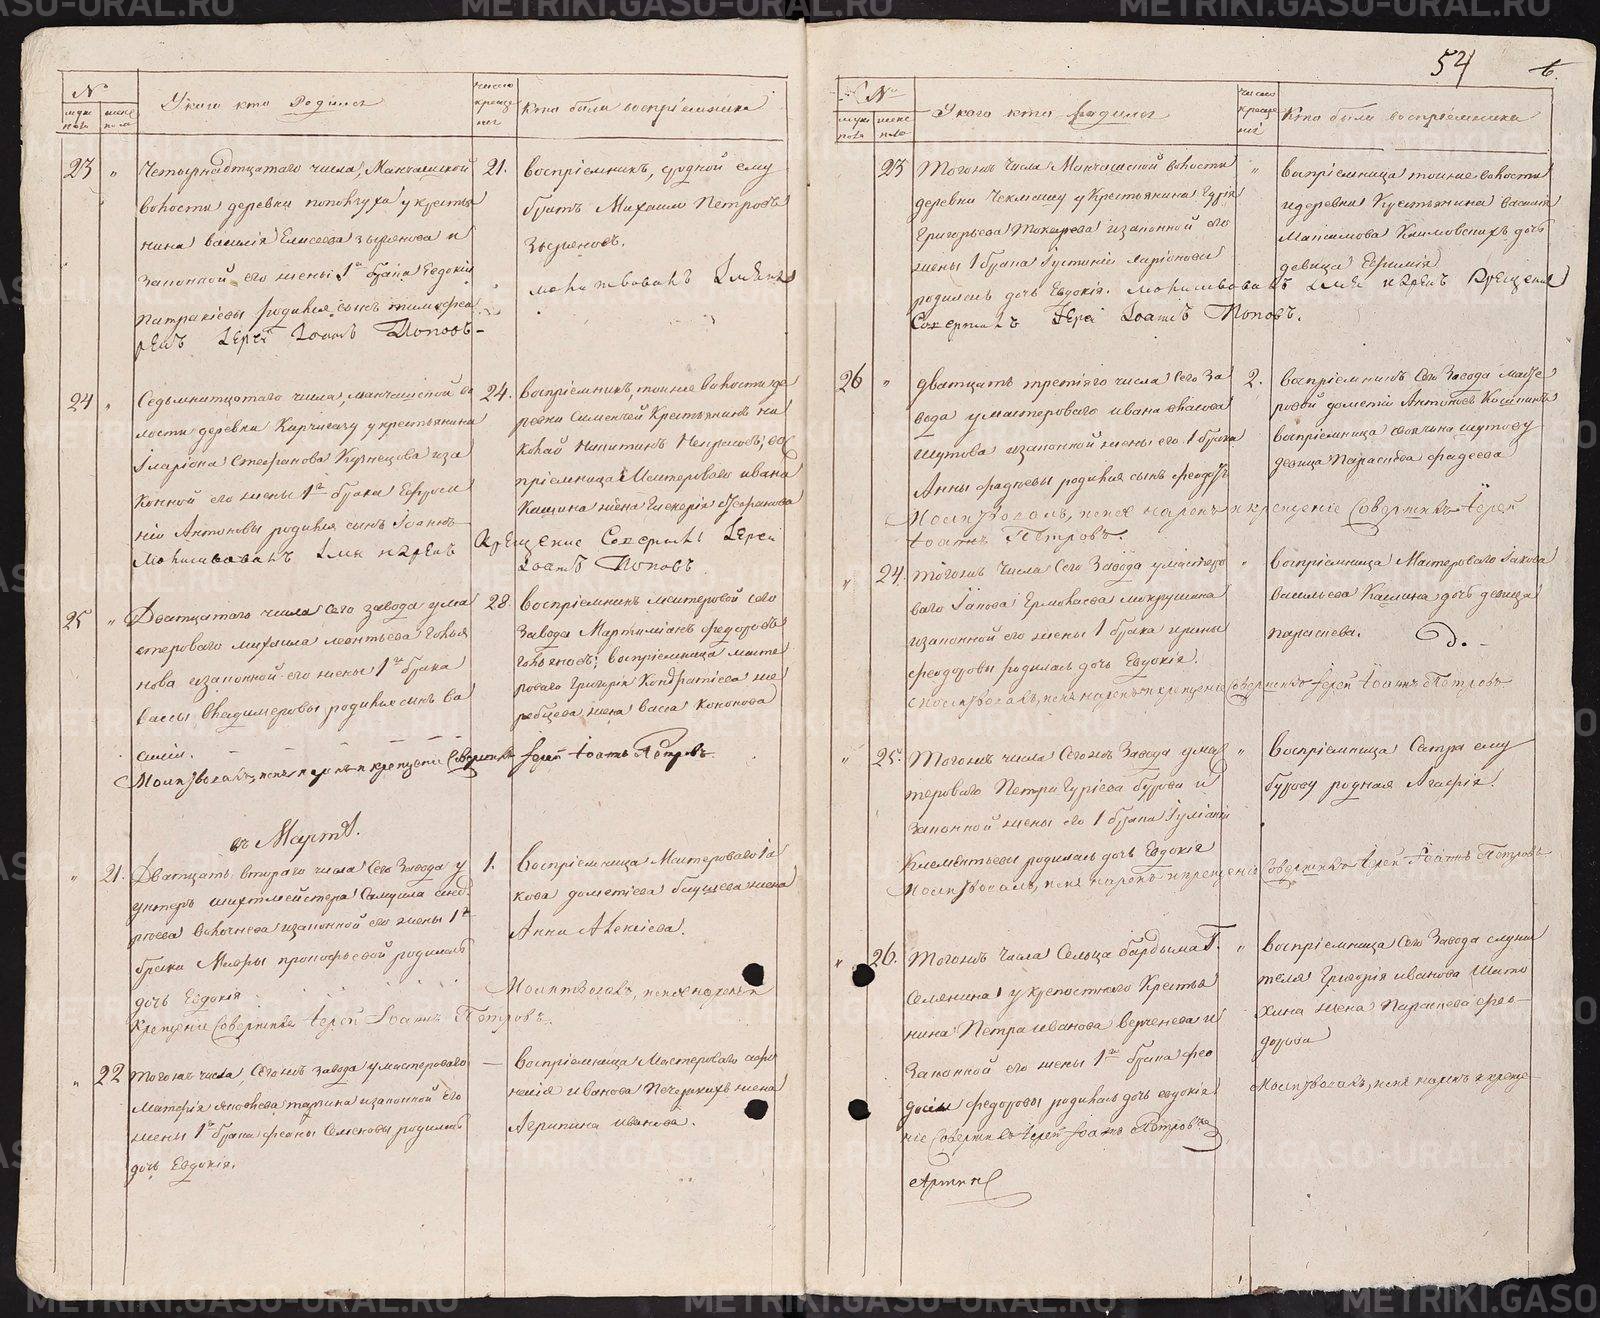 METRIKI.GASO-URAL.RU
54
№
муж пола
женс пола
У кого кто Родился
число креще ния
Кто были воспрiемники
23 " Четырнадцатаго числа, Манчажской
волости деревни у крестья
нина василiя Елисеева зырянова и
законной его жены 1го брака Евдокiи
родился сынъ тимофей
рецъ Iерей Iоаннъ Поповъ
21. воспрiемникъ, сродной ему
братъ Михаилъ Петровъ
Зыряновъ.
молитвовалъ Имя на
24 " Седьмнатцатаго числа, манчажской во
лости деревни у крестьянина
Iларiона Стефанова Кузнецова и за
конной его жены 1го брака Ефроси
нiи Антоновы родился сынъ Iоаннъ
Молитвовалъ Имя нарецъ Крещенiе Совершилъ Iерей
Iоаннъ Поповъ
24. воспрiемникъ, тоиже волости и де
ревни Крестьянинъ ни
колай Никитинъ Некрасовъ; вос
прiемница Мастероваго ивана
Кашина жена Гликерiя Стефанова
25 " Дватцатаго числа сего завода у ма
стероваго михаила леонтьева голья
нова и законной его жены 1го брака
вассы Владимеровы родился сынъ ва
силiй.
Молитвовалъ, имя нарекъ и крещенiе Совершилъ Iерей Iоаннъ Петровъ
28 Воспрiемникъ мастеровой сего
завода Мартимiанъ Федоровъ
гольяновъ; воспрiемница масте
роваго Григорiя Кондратiева же
ребцева жена васса Кононова
въ Мартѣ.
" 21. Дватцать втораго числа Сего Завода у
унтеръ шихтмейстера Самуила анд
реева волочнева и законной его жены 1го
брака Мавры прокофьевой родилась
дочь Евдокiя
Крещенiе Совершилъ Iерей Iоаннъ Петровъ.
1. Воспрiемница Мастероваго Iа
кова дометiева жена
Анна Алексiева.
Молитвовалъ, имя нарекъ и
" 22 тогожъ числа, Сегожъ завода у мастероваго
Матфiя тяпкина и законной его
жены 1го брака феоны Семеновы родилась
дочь Евдокiя.
— Воспрiемница Мастероваго афо
насiя иванова Печерскихъ жена
Агрипина иванова.
№
муж пола
женс пола
У кого кто родился
число креще нiя
Кто были воспрiемники
23 Тогожъ числа Манчажской волости
деревни Чекмашу у Крестьянина Гурiя
Григорьева Токарева и законной его
жены 1 брака Iустинiи ларiоновы
родилась дочь Евдокiя. Молитвовалъ Имя нарецъ Крещенiе
Совершилъ Iерей Iоаннъ Поповъ.
" воспрiемница тоиже волости
и деревни Крестьянина василiя
Максимова Климовскихъ дочь
девица Ефимiя
26 " дватцать третiяго числа Сего За
вода у мастероваго ивана власова
Шутова и законной жены его 1 брака
Анны фадѣевы родился сынъ феодоръ
Молитвовалъ, имя нарекъ и крещенiе Совершилъ Iерей
Iоаннъ Петровъ.
2. воспрiемникъ Сего Завода масте
ровой дометiй Антоновъ
воспрiемница шутову
девица Параскева фадеева
" 24. тогожъ Числа Сего Завода у мастеро
ваго Iакова Ермолаева мокрушина
и законной его жены 1 брака ирины
феодоровы родилась дочь Евдокiя.
Молитвовалъ, имя нарекъ и крещенiе Совершилъ Iерей Iоаннъ Петровъ
" воспрiемница Мастероваго Iакова
васильева Кашина дочь девица
параскева.
" 25. Тогожъ числа Сегожъ Завода у мас
тероваго Петра Гурiева бурова и
законной жены его 1 брака Iулiанiи
Клементьевы родилась дочь Евдокiя
Молитвовалъ, имя нарекъ и крещенiе Совершилъ Iерей Iоаннъ Петровъ
" воспрiемница Сестра ему
бурову родная Агафiя.
" 26. Тогожъ Числа Сельца бардыма Г.
Семянина у крепостнаго Крестья
нина Петра иванова верченева и
Законной его жены 1го брака фео
досiи федоровы родилась дочь евдокiя
нiе Совершилъ Iерей Iоаннъ Петровъ
" воспрiемница Сего Завода служи
теля Григорiя иванова Шато
хина жена Параскева фео
дорова
Молитвовалъ, имя нарекъ и креще
Артин